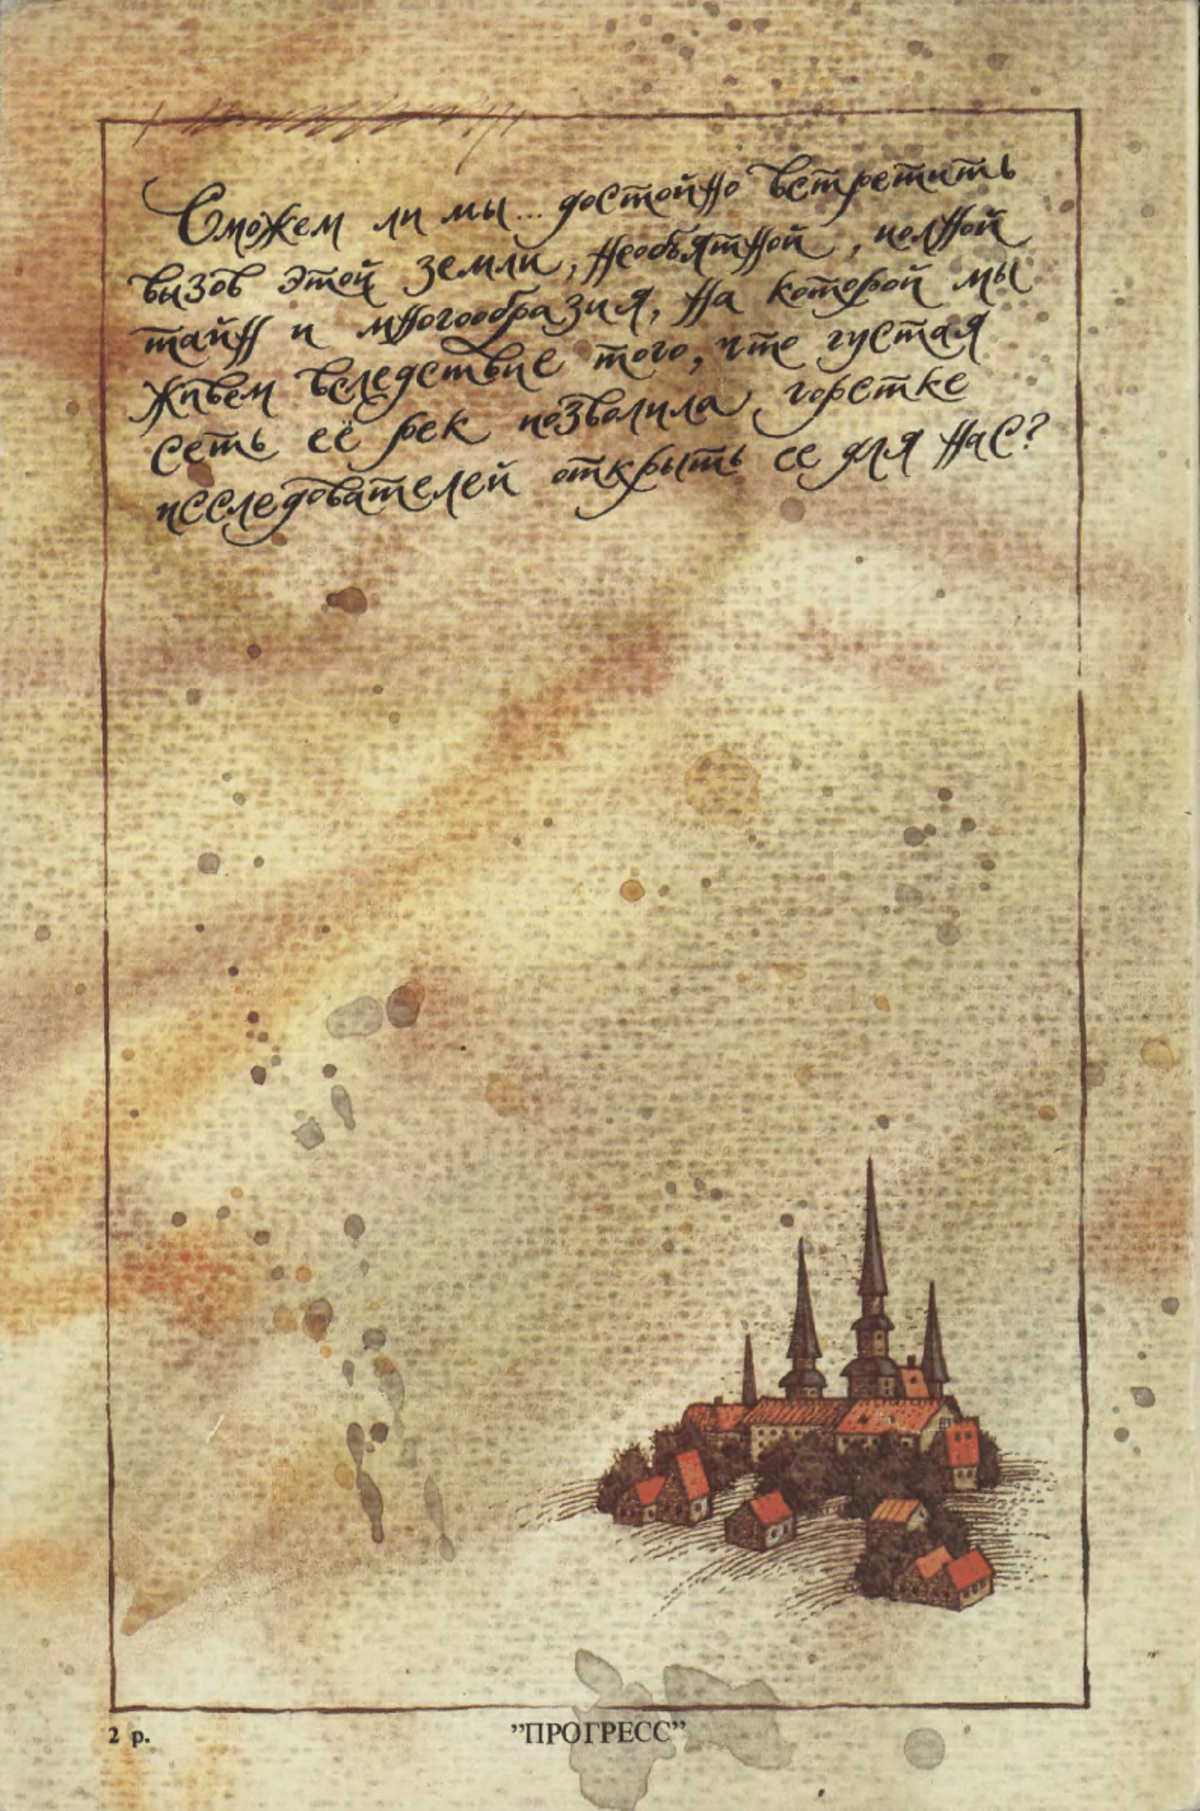 Сможем ли мы... достойно встретить
вызов этой земли, необъятной, полной
тайн и многообразия, на которой мы
живем вследствие того, что густая
сеть её рек позволила горстке
исследователей открыть ее для нас?
2 р.
"ПРОГРЕСС"